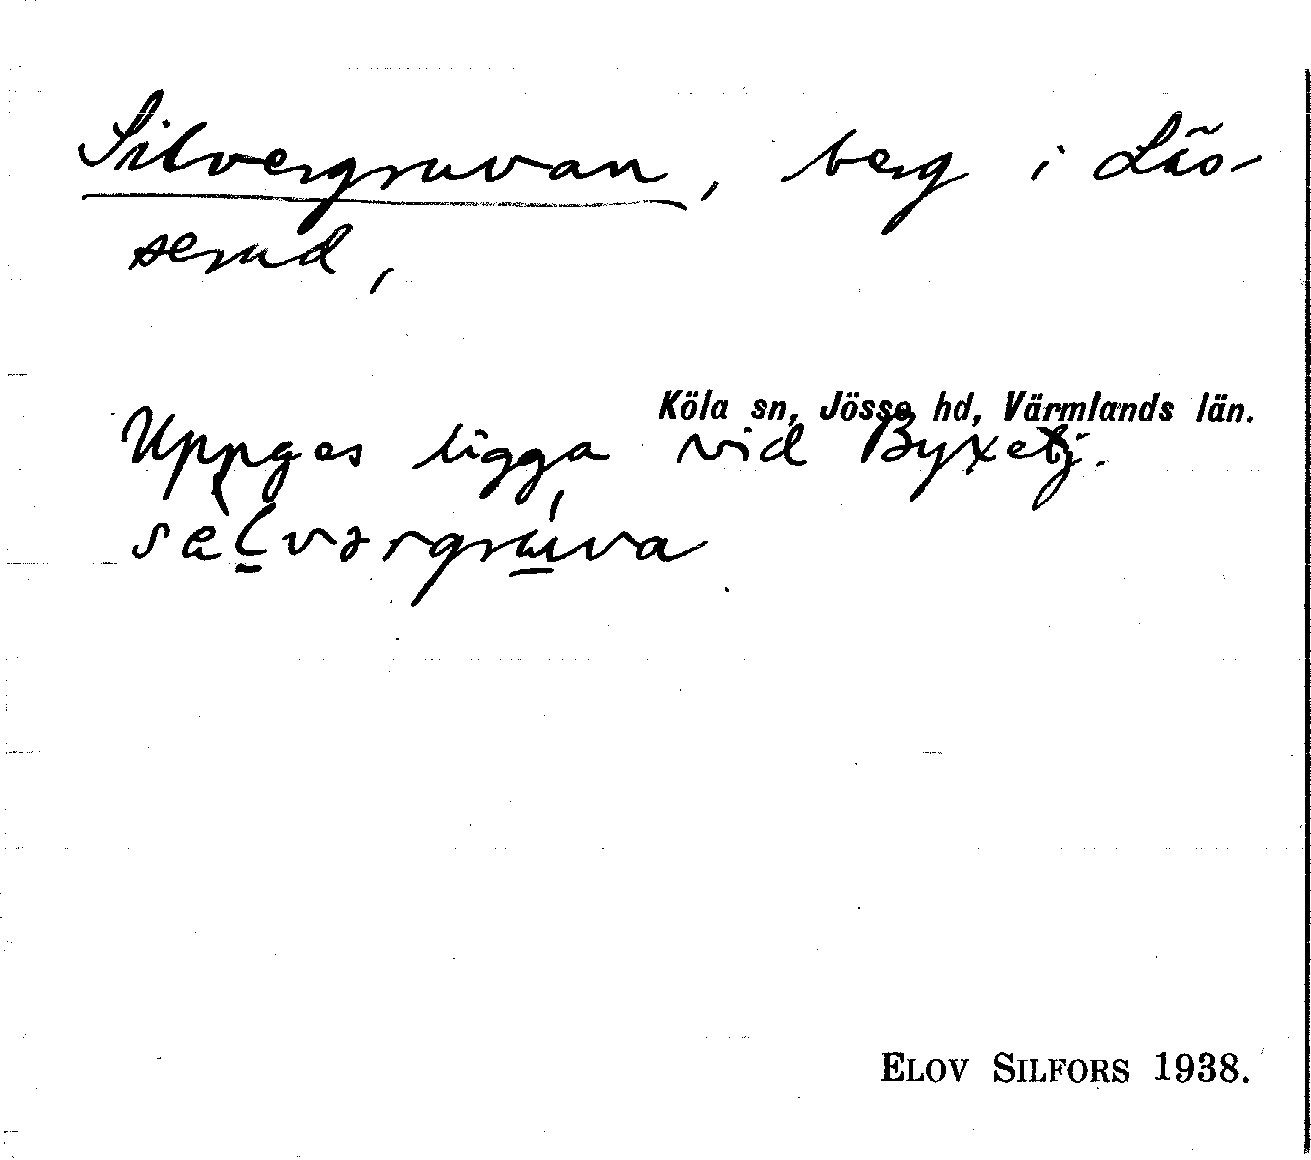 Silvergruvan, berg i Läs-
serud,
Köla sn, Jösse hd, Värmlands län.
Uppges ligga vid Byxetj.
sèlvərgrúva
ELOV SILFORS 1938.